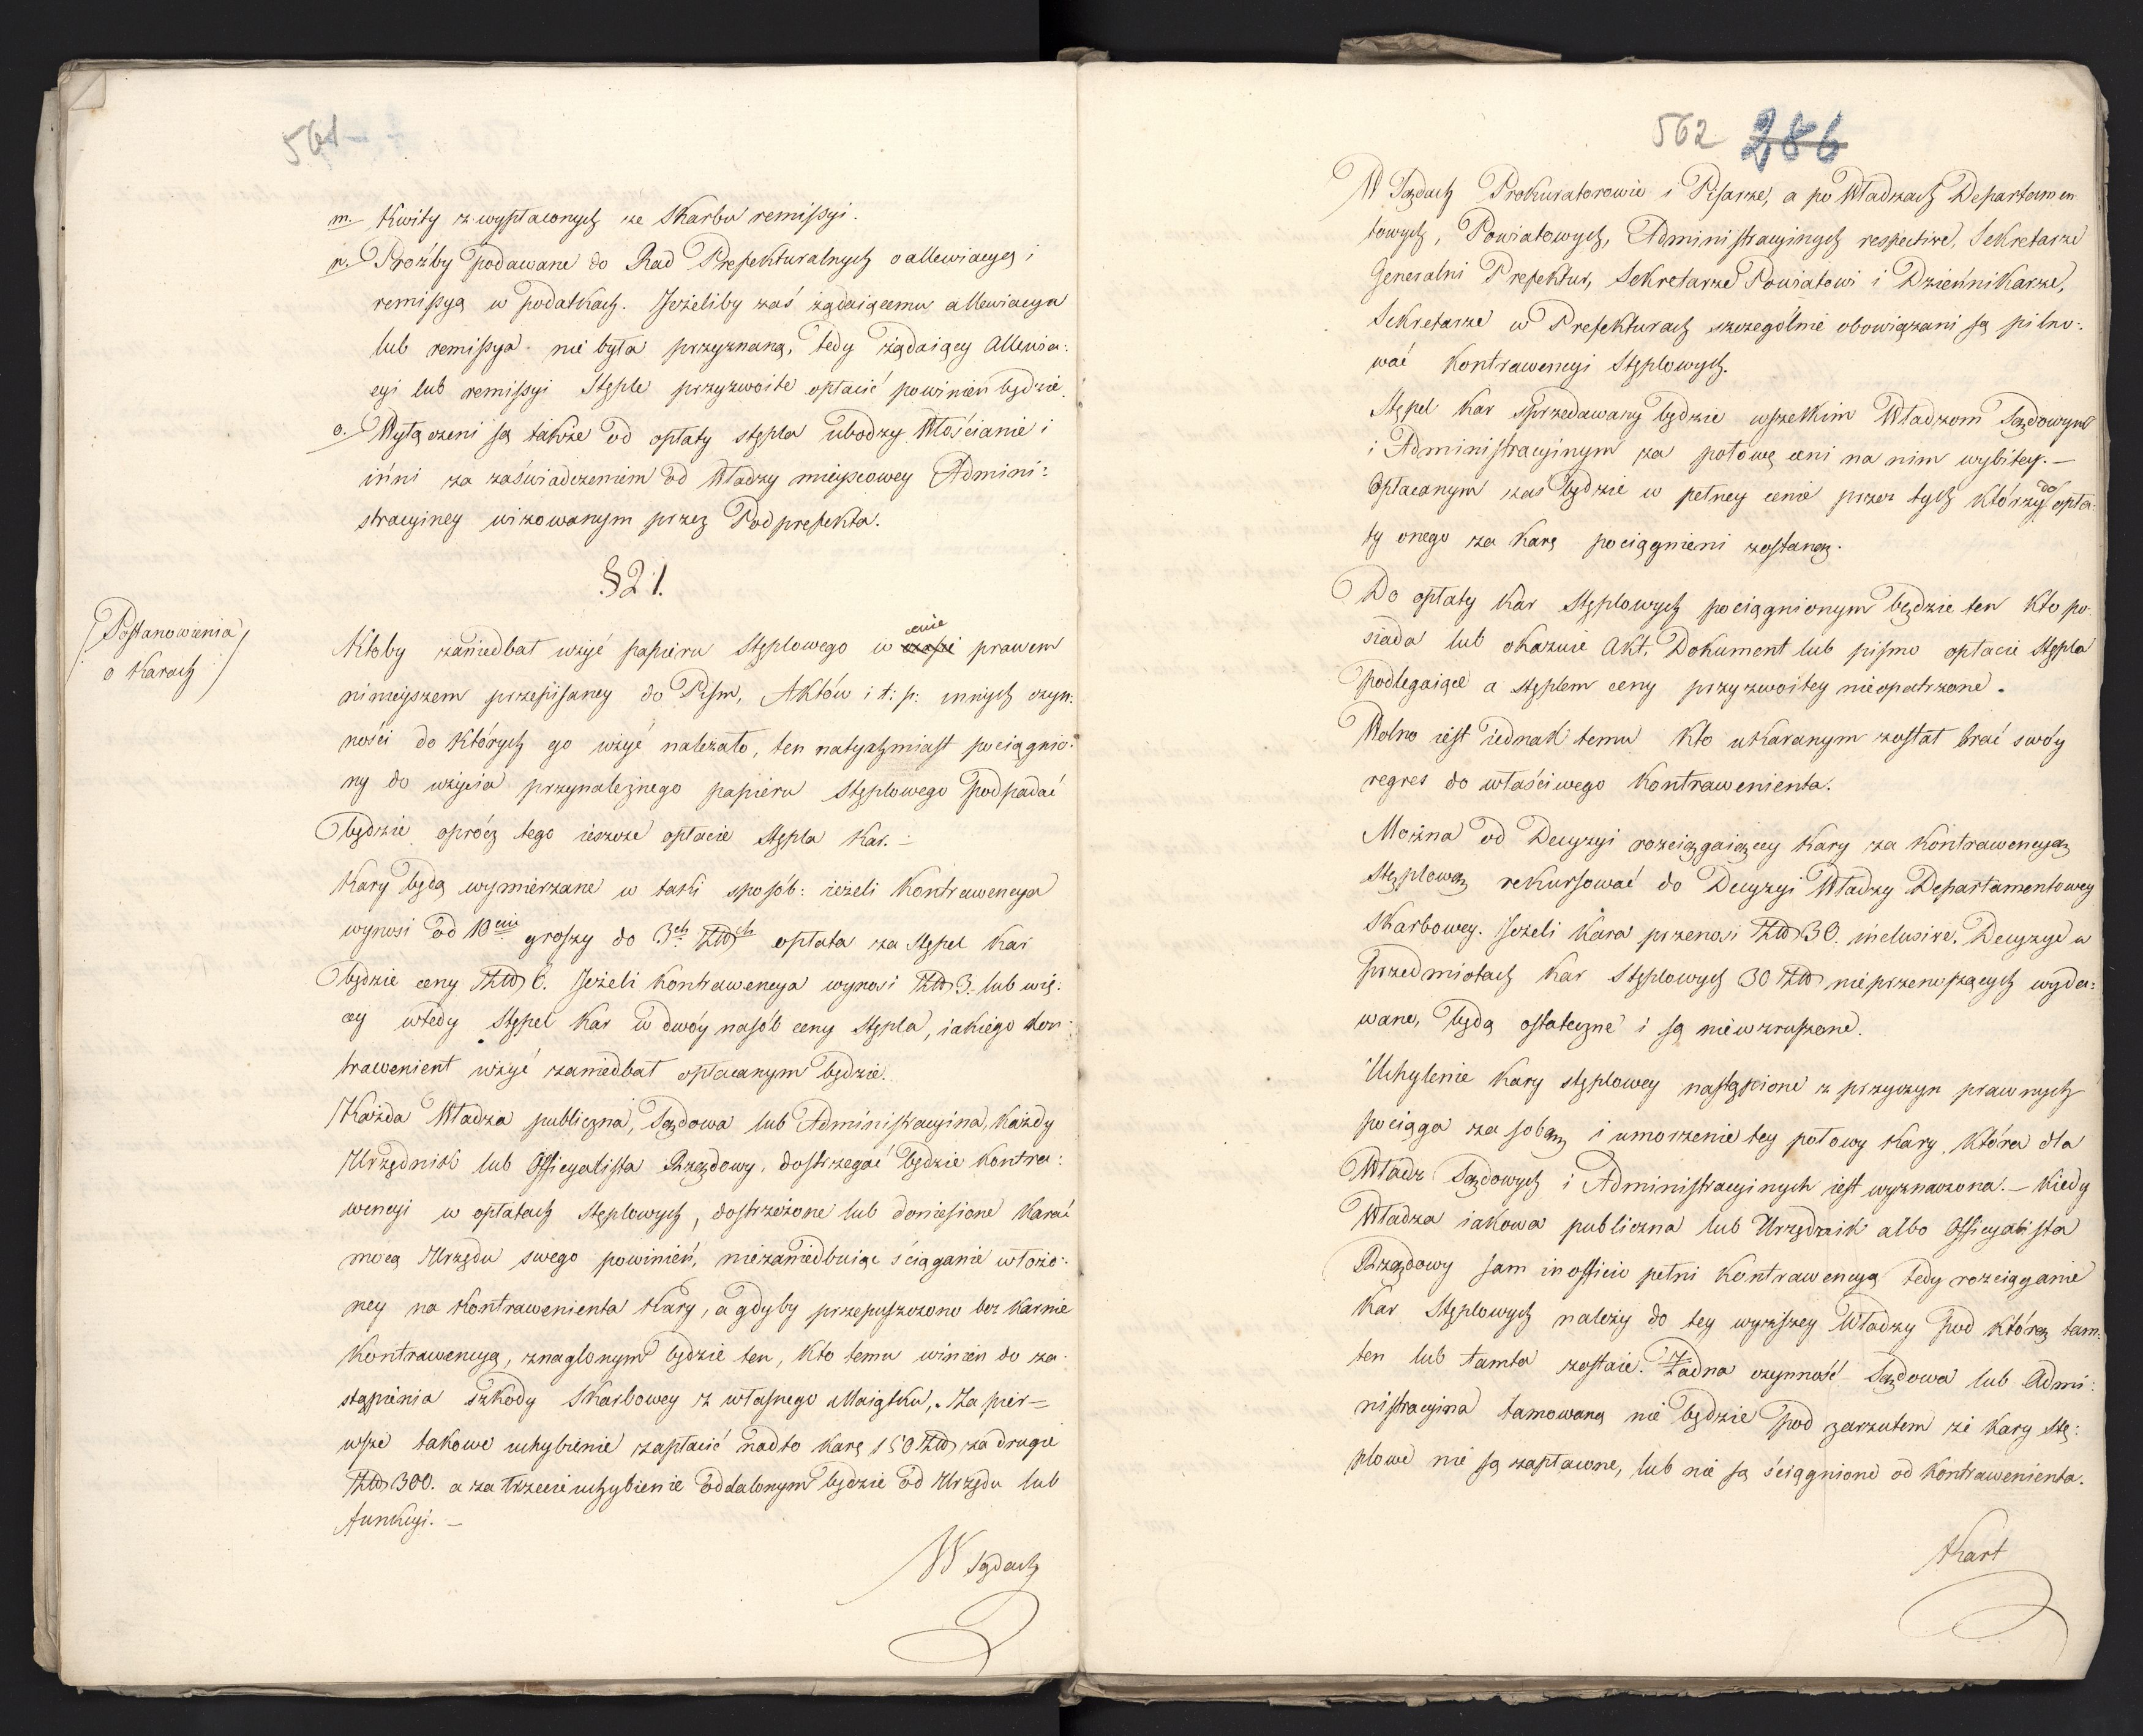 561
m. Kwity z wypłaconych ze Skarbu remissyi.
n. Proźby podawane do Rad Prefekturalnych o allewiacyą i
remissyą w podatkach. Jeżeliby zaś żądaiącemu allewiacya
lub remissya nie była przyznaną, tedy żądaiący Allewia:
cyi lub remissyi Stęple przyzwoite opłacić powinien będzie.
o. Wyłączeni są także od opłaty stępla ubodzy Włościanie i
inni za zaświadczeniem od Władzy mieyscowey Admini:
stracyiney wizowanym przez Podprefekta.
§ 21.
Postanowienia
o Karach
Ktoby zaniedbał użyć papieru Stęplowego w cenie prawem
ninieyszem przepisaney do Pism, Aktów i t: p: innych czyn:
ności do których go użyć należało, ten natychmiast pociągnio:
ny do użycia przynależnego papieru Stęplowego podpadać
będzie oprócz tego ieszcze opłacie Stępla Kar. –
Kary będą wymierzane w taki sposób: ieżeli Kontrawencya
wynosi od 10ciu groszy do 3ch Złłch opłata za Stępel Kar
będzie ceny Złł 6. Jeżeli Kontrawencya wynosi Złł 3. lub wię:
cey wtedy Stępel Kar w dwóynasób ceny Stępla, iakiego Kon:
trawenient użyć zaniedbał opłacanym będzie.
Każda Władza publiczna, Sądowa lub Administracyina, każdy
Urzędnik lub Officyalista Rządowy, dostrzegać będzie Kontra:
wencyi w opłatach Stęplowych, dostrzeżone lub doniesione karać
mocą Urzędu swego powinien, niezaniedbuiąc ściąganie włożo:
ney na Kontrawenienta Kary, a gdyby przepuszczono bez karnie
Kontrawencyą, znaglonym będzie ten, kto temu winien do za:
stąpienia szkody Skarbowey z własnego Maiątku, Za pier=
wsze takowe uchybienie zapłacić nadto karę 150 Złł za drugie
Złł 300. a za trzecie uchybienie oddalonym będzie od Urzędu lub
funkcyi. –
W Sądach
562 286
W Sądach Prokuratorowie i Pisarze, a po Władzach Departamen
towych, Powiatowych, Administracyinych respective, Sekretarze
Generalni Prefektur, Sekretarze Powiatowi i Dziennikarze,
Sekretarze w Prefekturach szczególnie obowiązani są pilno:
wać Kontrawencyi Stęplowych.
Stępel Kar sprzedawany będzie wszelkim Władzom Sądowym
i Administracyinym za połowę ceni na nim wybitey. –
Opłacanym zas będzie w pełney cenie przez tych którzy do opła:
ty onego za karę pociągnieni zostaną.
Do opłaty Kar Stęplowych pociągnionym będzie ten kto po
siada lub okazuie Akt, Dokument lub pismo opłacie Stępla
podlegaiące a Stęplem ceny przyzwoitey nieopatrzone.
Wolno iest iednak temu kto ukaranym został brać swóy
regres do właściwego Kontrawenienta.
Można od Decyzyi rozciągaiącey Kary za Kontrawencyą
Stęplową rekursować do Decyzyi Władzy Departamentowey
Skarbowey. Jeżeli Kara przenosi Złł 30. inclusive. Decyzye w
przedmiotach Kar Stęplowych 30 Złł nieprzenoszących wyda:
wane, będą ostateczne i są niewzruszone.
Uchylenie Kary stęplowey nastąpione z przyczyn prawnych
pociąga za sobą i umorzenie tey połowy Kary, która dla
Władz Sądowych i Administracyinych iest wyznaczona. – Kiedy
Władza iakowa publiczna lub Urzędnik albo Officyalista
Rządowy sam in officio pełni Kontrawencyą tedy rozciąganie
Kar Stęplowych należy do tey wyższey Władzy pod którą tam:
ten lub tamta zostaie. Żadna czynność Sądowa lub Admi:
nistracyina tamowaną nie będzie pod zarzutem że Kary Stę:
plowe nie są zapłacone, lub nie są ściągnione od Kontrawenienta.
Kart